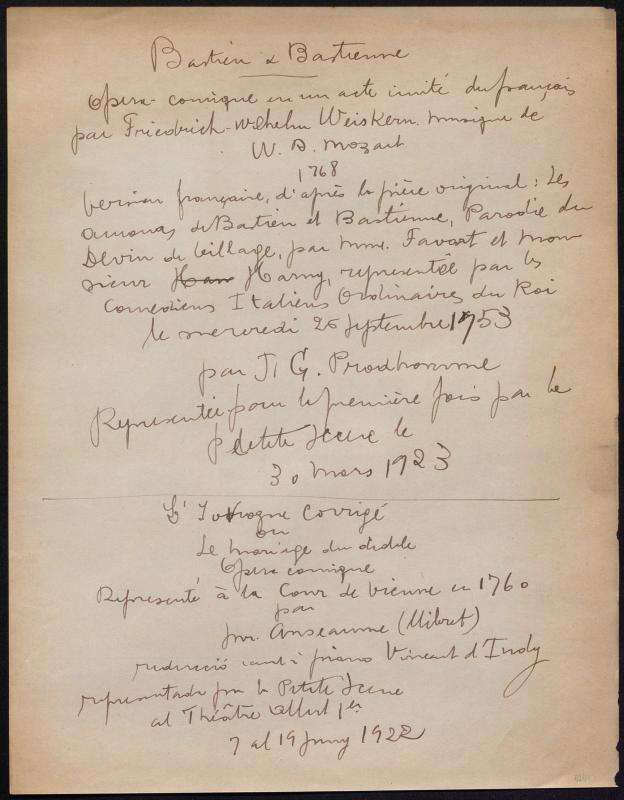 Bastien & Bastienne
Opera-comique en un acte imité du français
par Friedrich-Wilhelm Weiskern. musique de
W. A. Mozart
1768
Version française, d'après la pièce original: Les
amours de Bastien et Bastienne, Parodie du
Devin du Village, par Mme. Favart et mon
sieur Harny, representée par les
Comediens Italiens Ordinaires du Roi
le mercredi 26 septembre 1753
par J. G. Prodhomme
Representée pour la première fois par la
petite scene le
30 mars 1923
L'Ivrogne Corrigé
ou
Le mariage du diable
Opera comique
Representé à la Cour de Vienne en 1760
par
mr. Anseaume (Llibret)
reducció cant i piano Vincent d'Indy
representada per la Petite Scene
al Théâtre Albert 1er
7 al 19 juny 1922